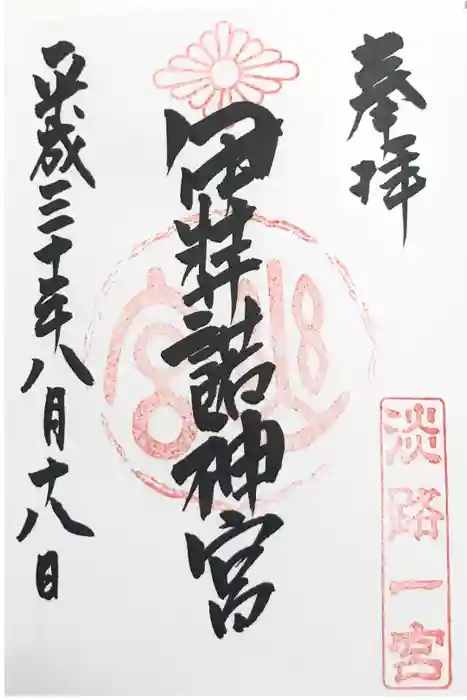 奉拝
淡路一宮
伊弉諾神宮
平成三十年八月十八日